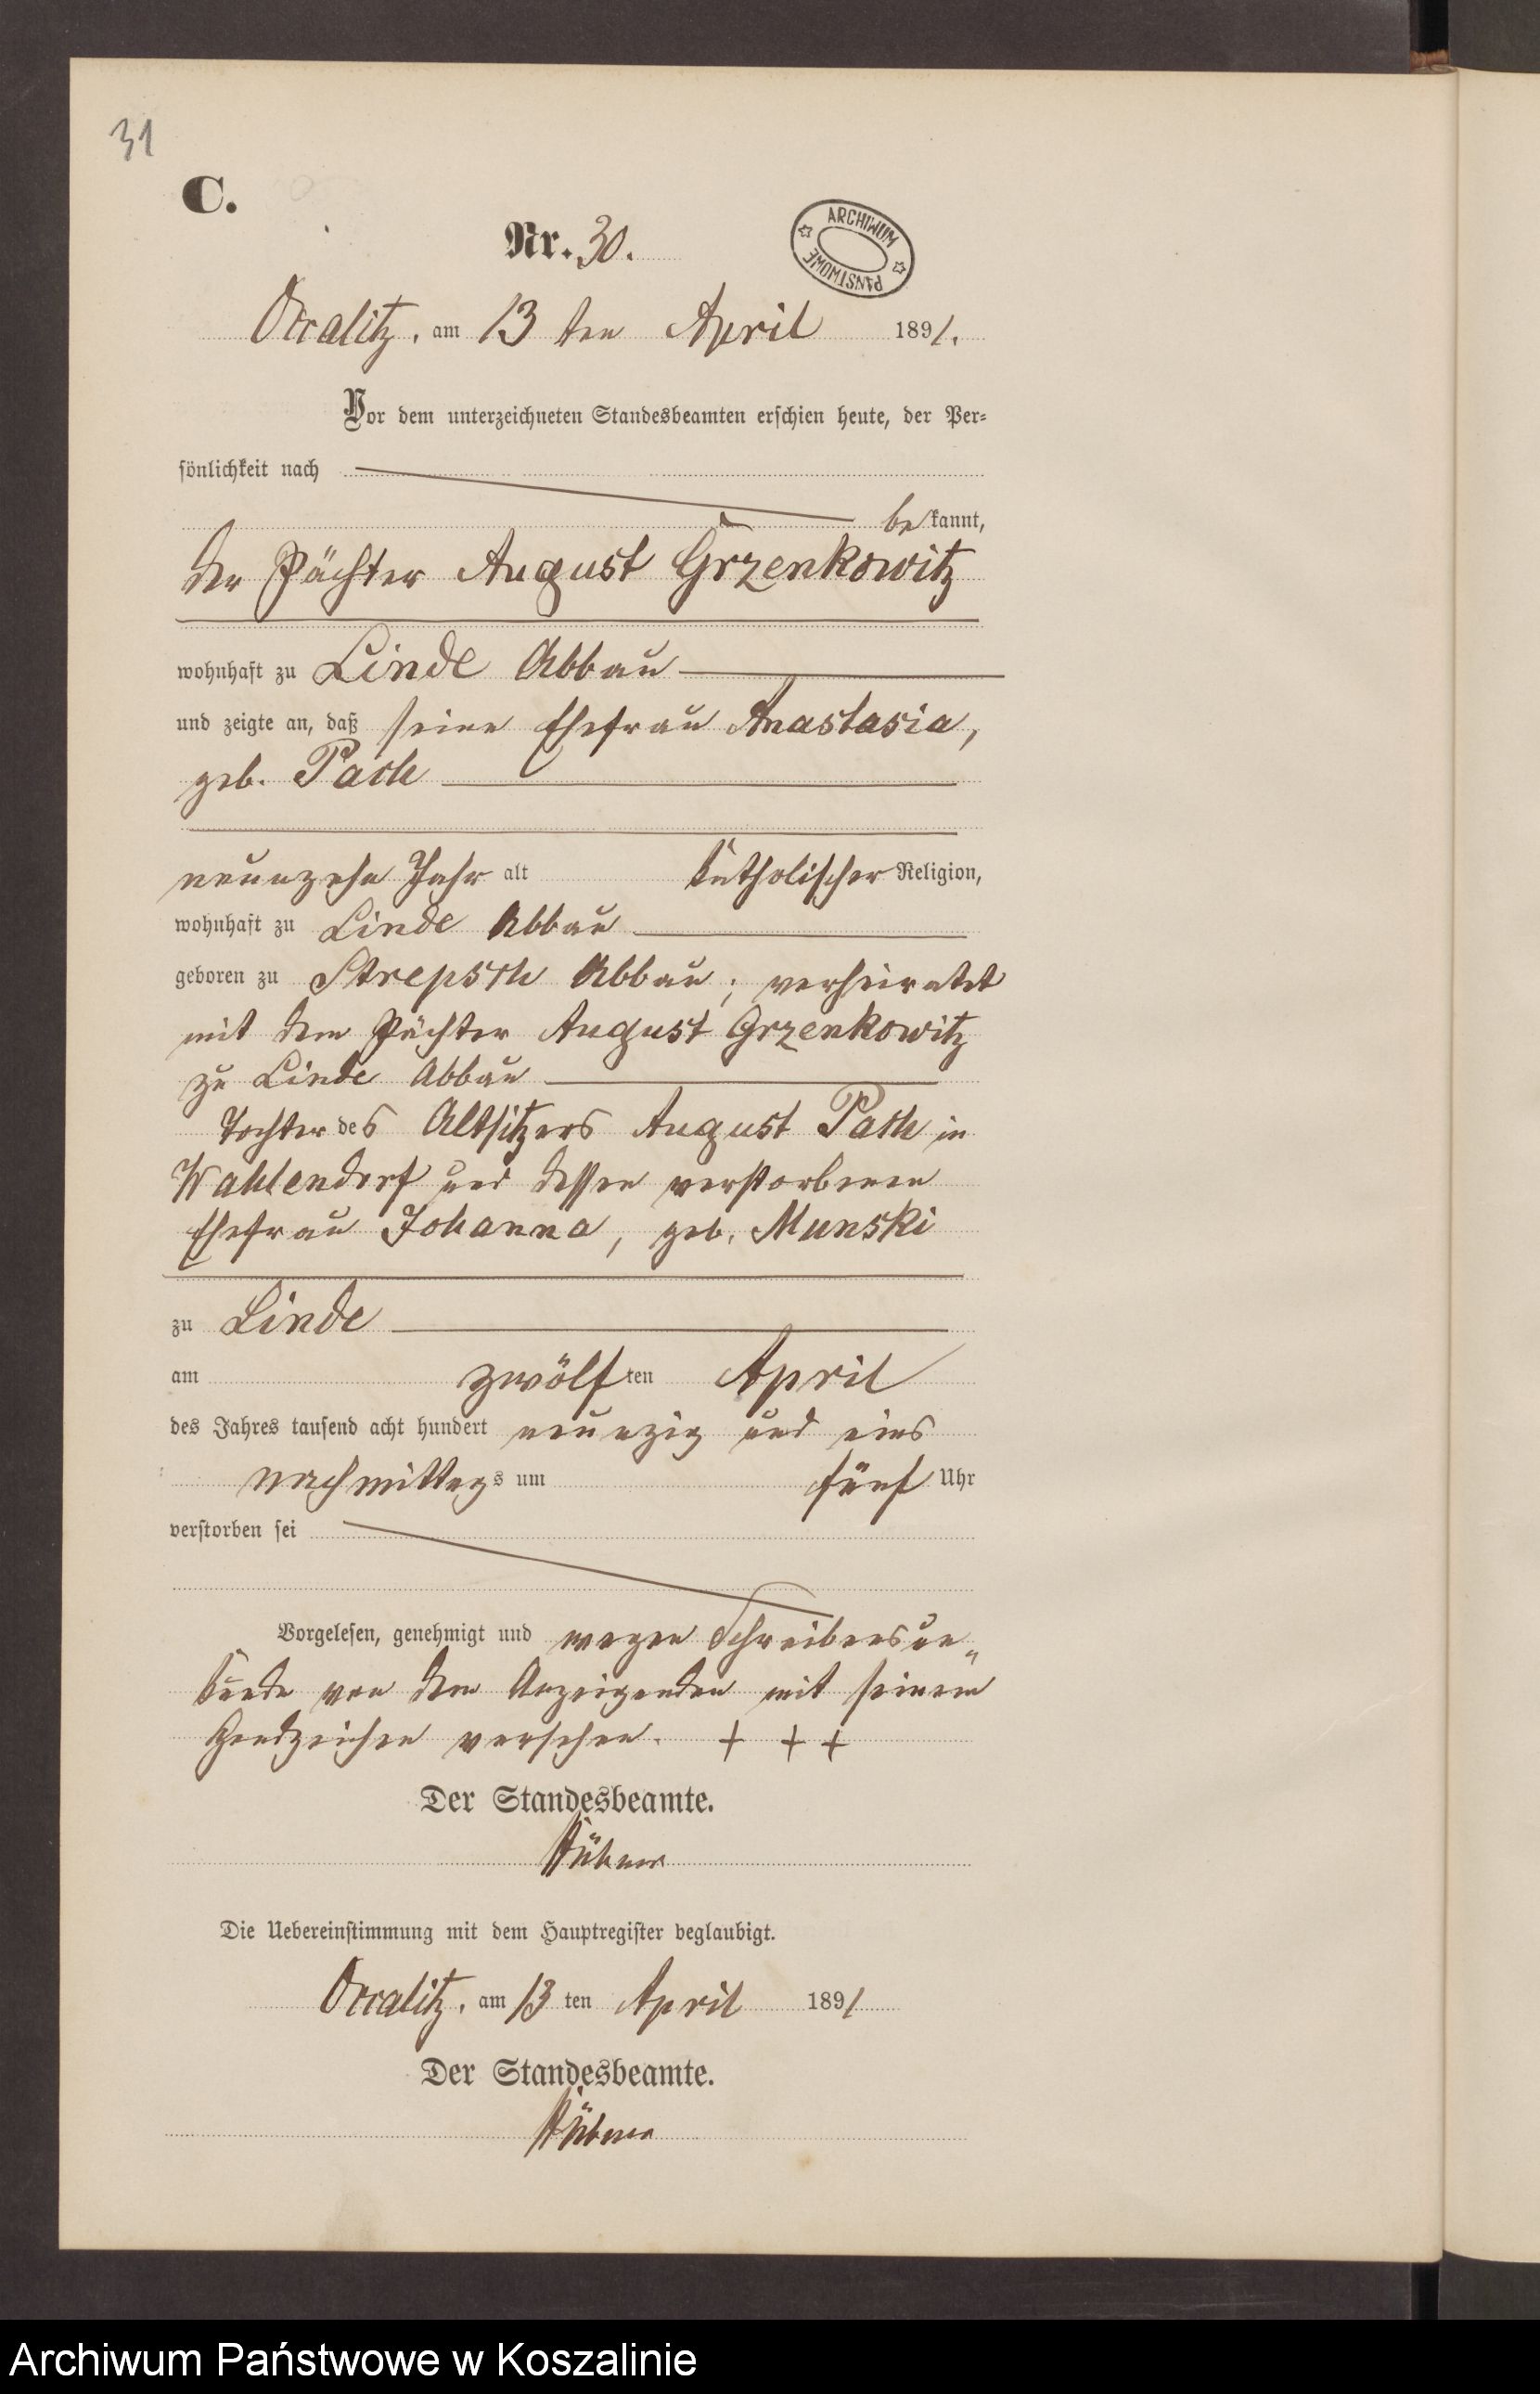 31
C.
Nr. 30.
ARCHIWUM PAŃSTWOWE
Occalitz, am 13 ten April 1891.
Vor dem unterzeichneten Standesbeamten erschien heute, der Per-
sönlichkeit nach
bekannt,
der Pächter August Grzenkowitz
wohnhaft zu Linde Abbau
und zeigte an, daß seine Ehefrau Anastasia,
geb. Pach
neunzehn Jahr alt katholischer Religion,
wohnhaft zu Linde Abbau
geboren zu Strepsch Abbau; verheiratet
mit dem Pächter August Grzenkowitz
zu Linde Abbau
Tochter des Altsitzers August Pach in
Wahlendorf und dessen verstorbenen
Ehefrau Johanna, geb. Munski
zu Linde
am zwölften April
des Jahres tausend acht hundert neunzig und eins
nachmittags um fünf Uhr
verstorben sei
Vorgelesen, genehmigt und wegen Schreibensun„
kunde von dem Anzeigenden mit seinem
Handzeichen versehen. + + +
Der Standesbeamte.
Die Uebereinstimmung mit dem Hauptregister beglaubigt.
Occalitz, am 13 ten April 1891
Der Standesbeamte.
Archiwum Państwowe w Koszalinie